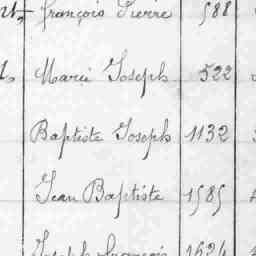 françois Pierre 588
Marie Joseph 522
Baptiste Joseph 1132
Jean Baptiste 1585
Joseph françois 1624